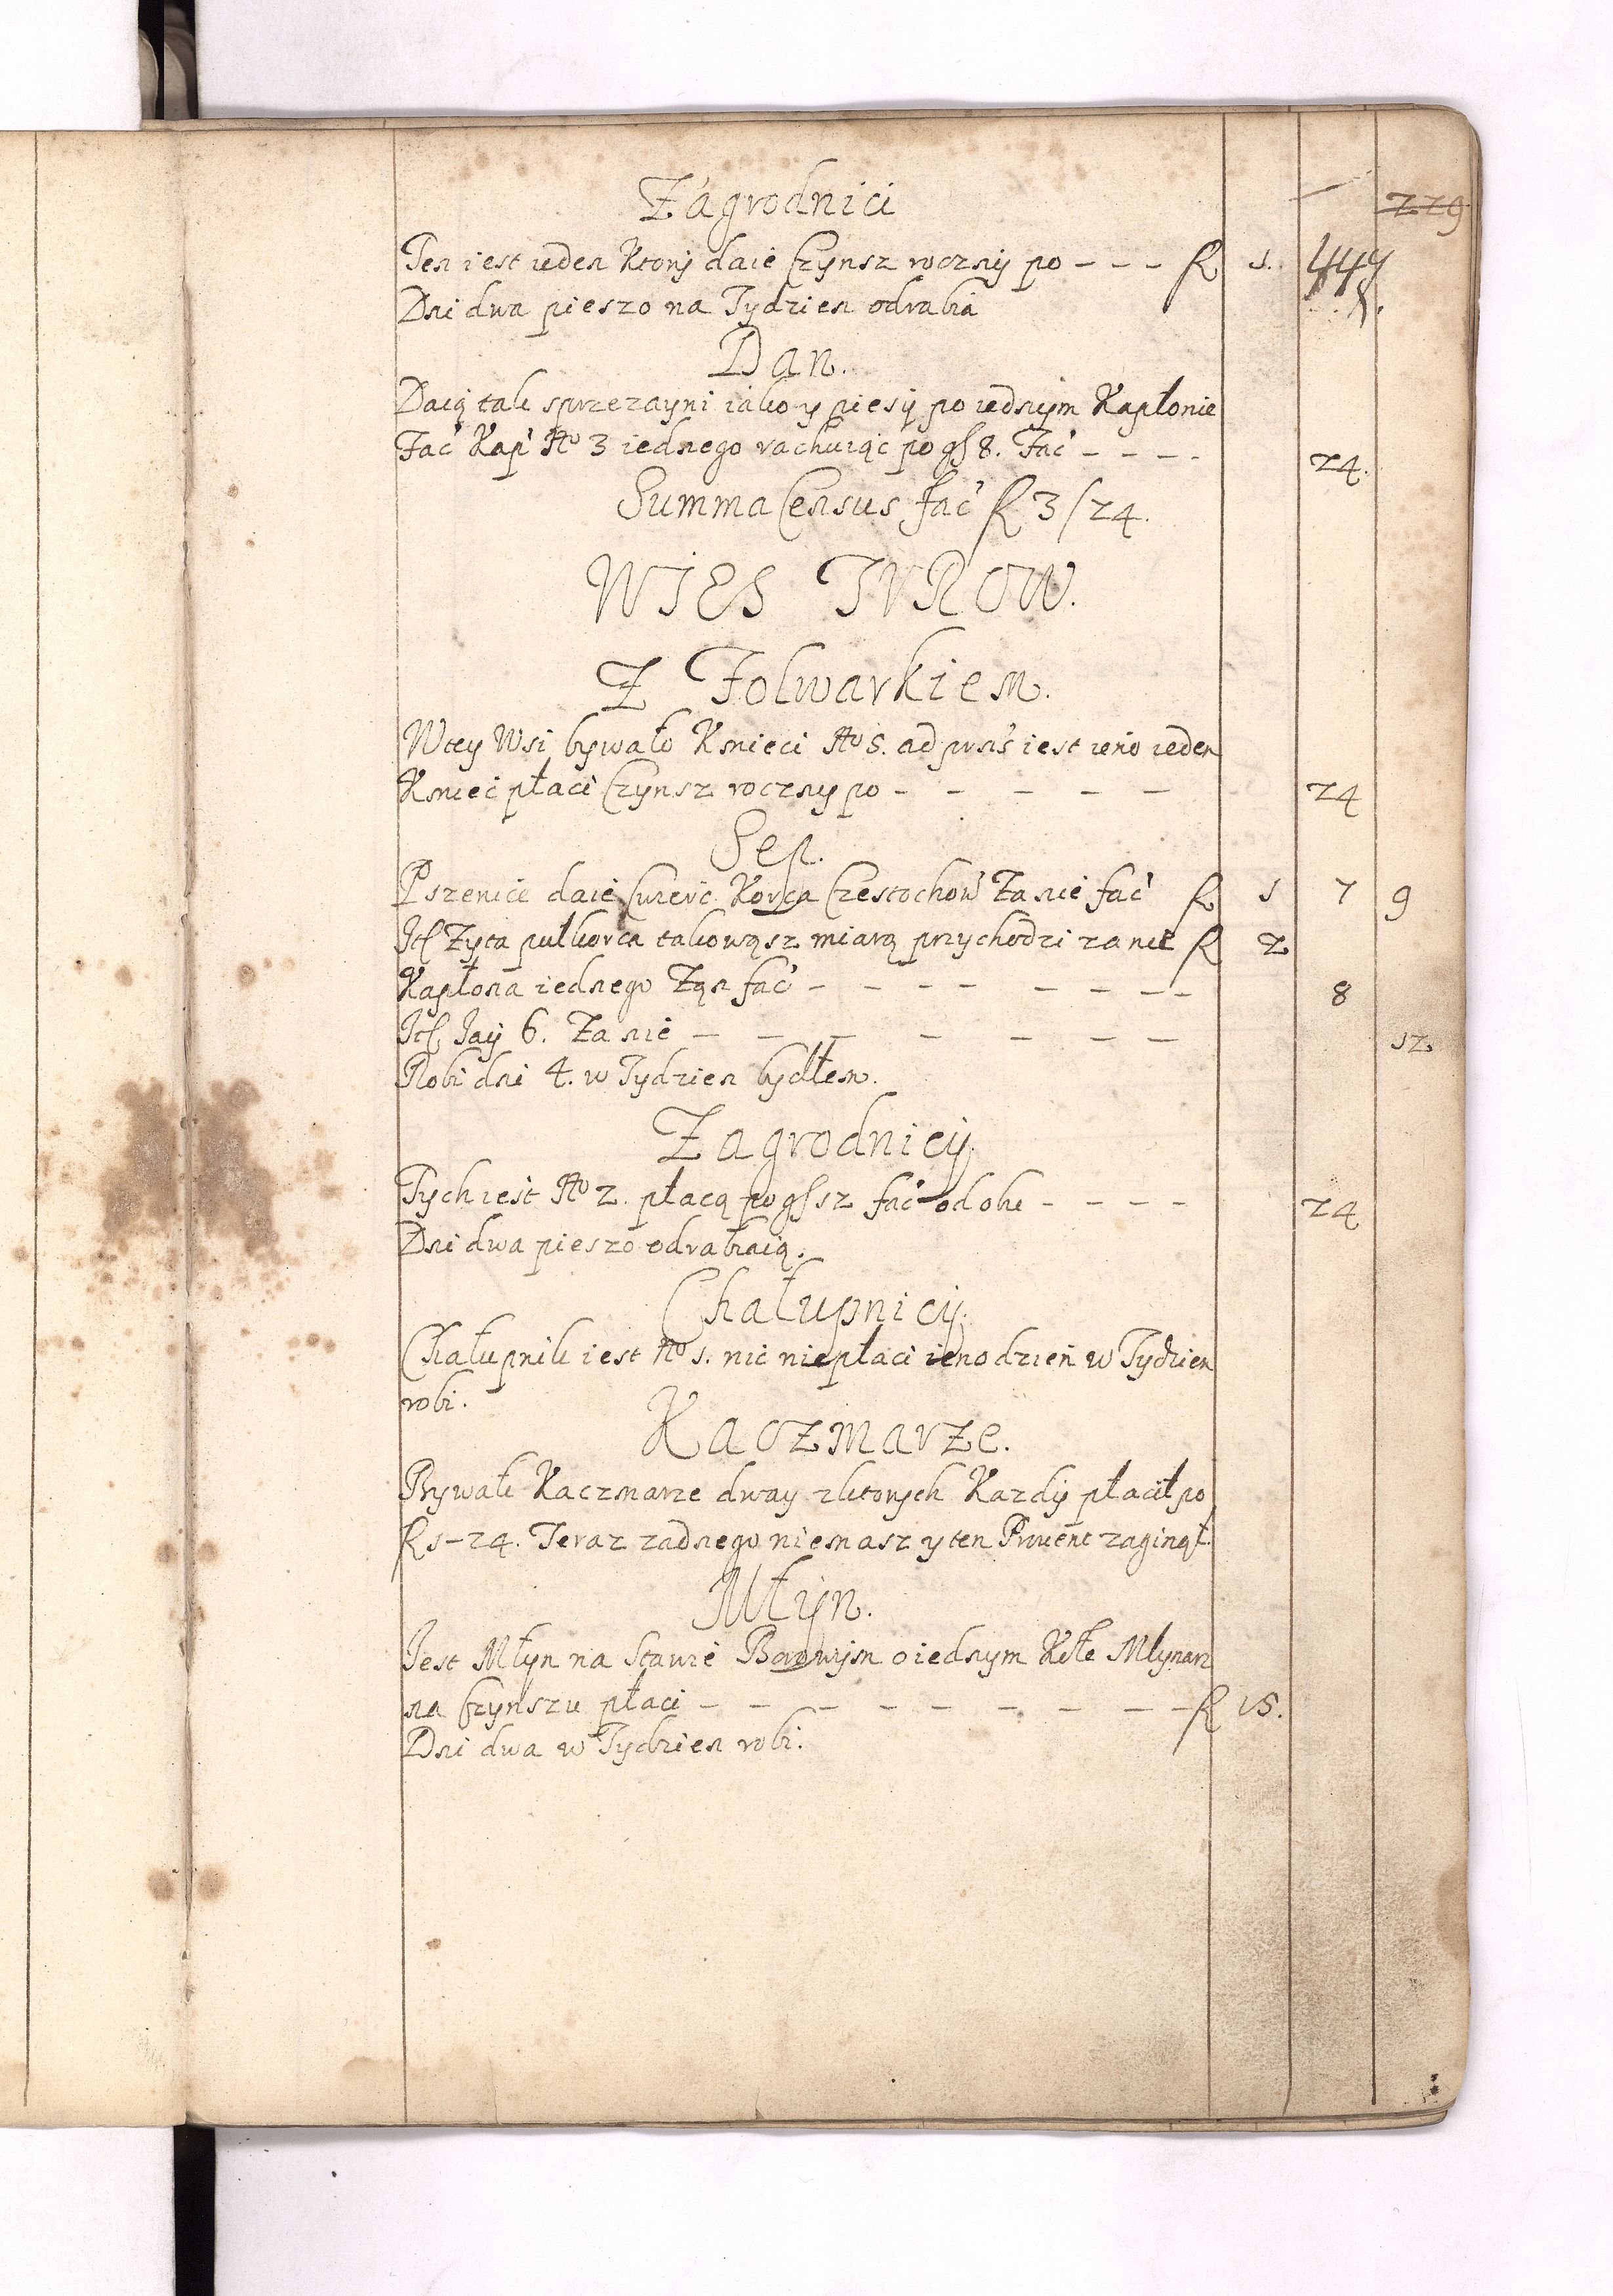 Zagrodnici
229
Ten iest ieden Ktory daie Czynsz roczny po - - - R 1.
Dni dwa pieszo na Tydzien odrabia
Dan.
Daią tak sprzezayni iako y piesy po iednym Kapłonie
Fac Kap No 3 iednego rachuiąc po gr 8. Fac - - - - 24.
Summa Census fac R 3/24.
WIES TVROW.
Z Folwarkiem.
W tey Wsi bywało Kmieci No 5. ad pns iest ieno ieden
Kmiec płaci Czynsz roczny po - - - - - 24
Sep.
Pszenice daie Cwierc Korca Czestochow Za nie fac R 1 7 9
It Zyta pułkorca takowąsz miarą przychodzi za nie R 2
Kapłona iednego Zań fac - - - - - - - - 8
It Iay 6. Za nie - - - - - - - 12
Robi dni 4. w Tydzien bydłem.
Zagrodnicy
Tych iest No 2. płacą po gr 12 fac od obu - - - - 24
Dni dwa pieszo odrabiaią.
Chałupnicy.
Chałupnik iest No 1. nic niepłaci ieno dzień w Tydzien
robi.
Kaczmarze.
Bywali Kaczmarze dway z ktorych Kazdy płacił po
R 1-24. Teraz zadnego niemasz y ten Prouent zaginął.
Młyn.
Iest Młyn na Stawie Borowym o iednym Kole Młynarz
na Czynszu płaci - - - - - - - - R 15.
Dni dwa w Tydzien robi.